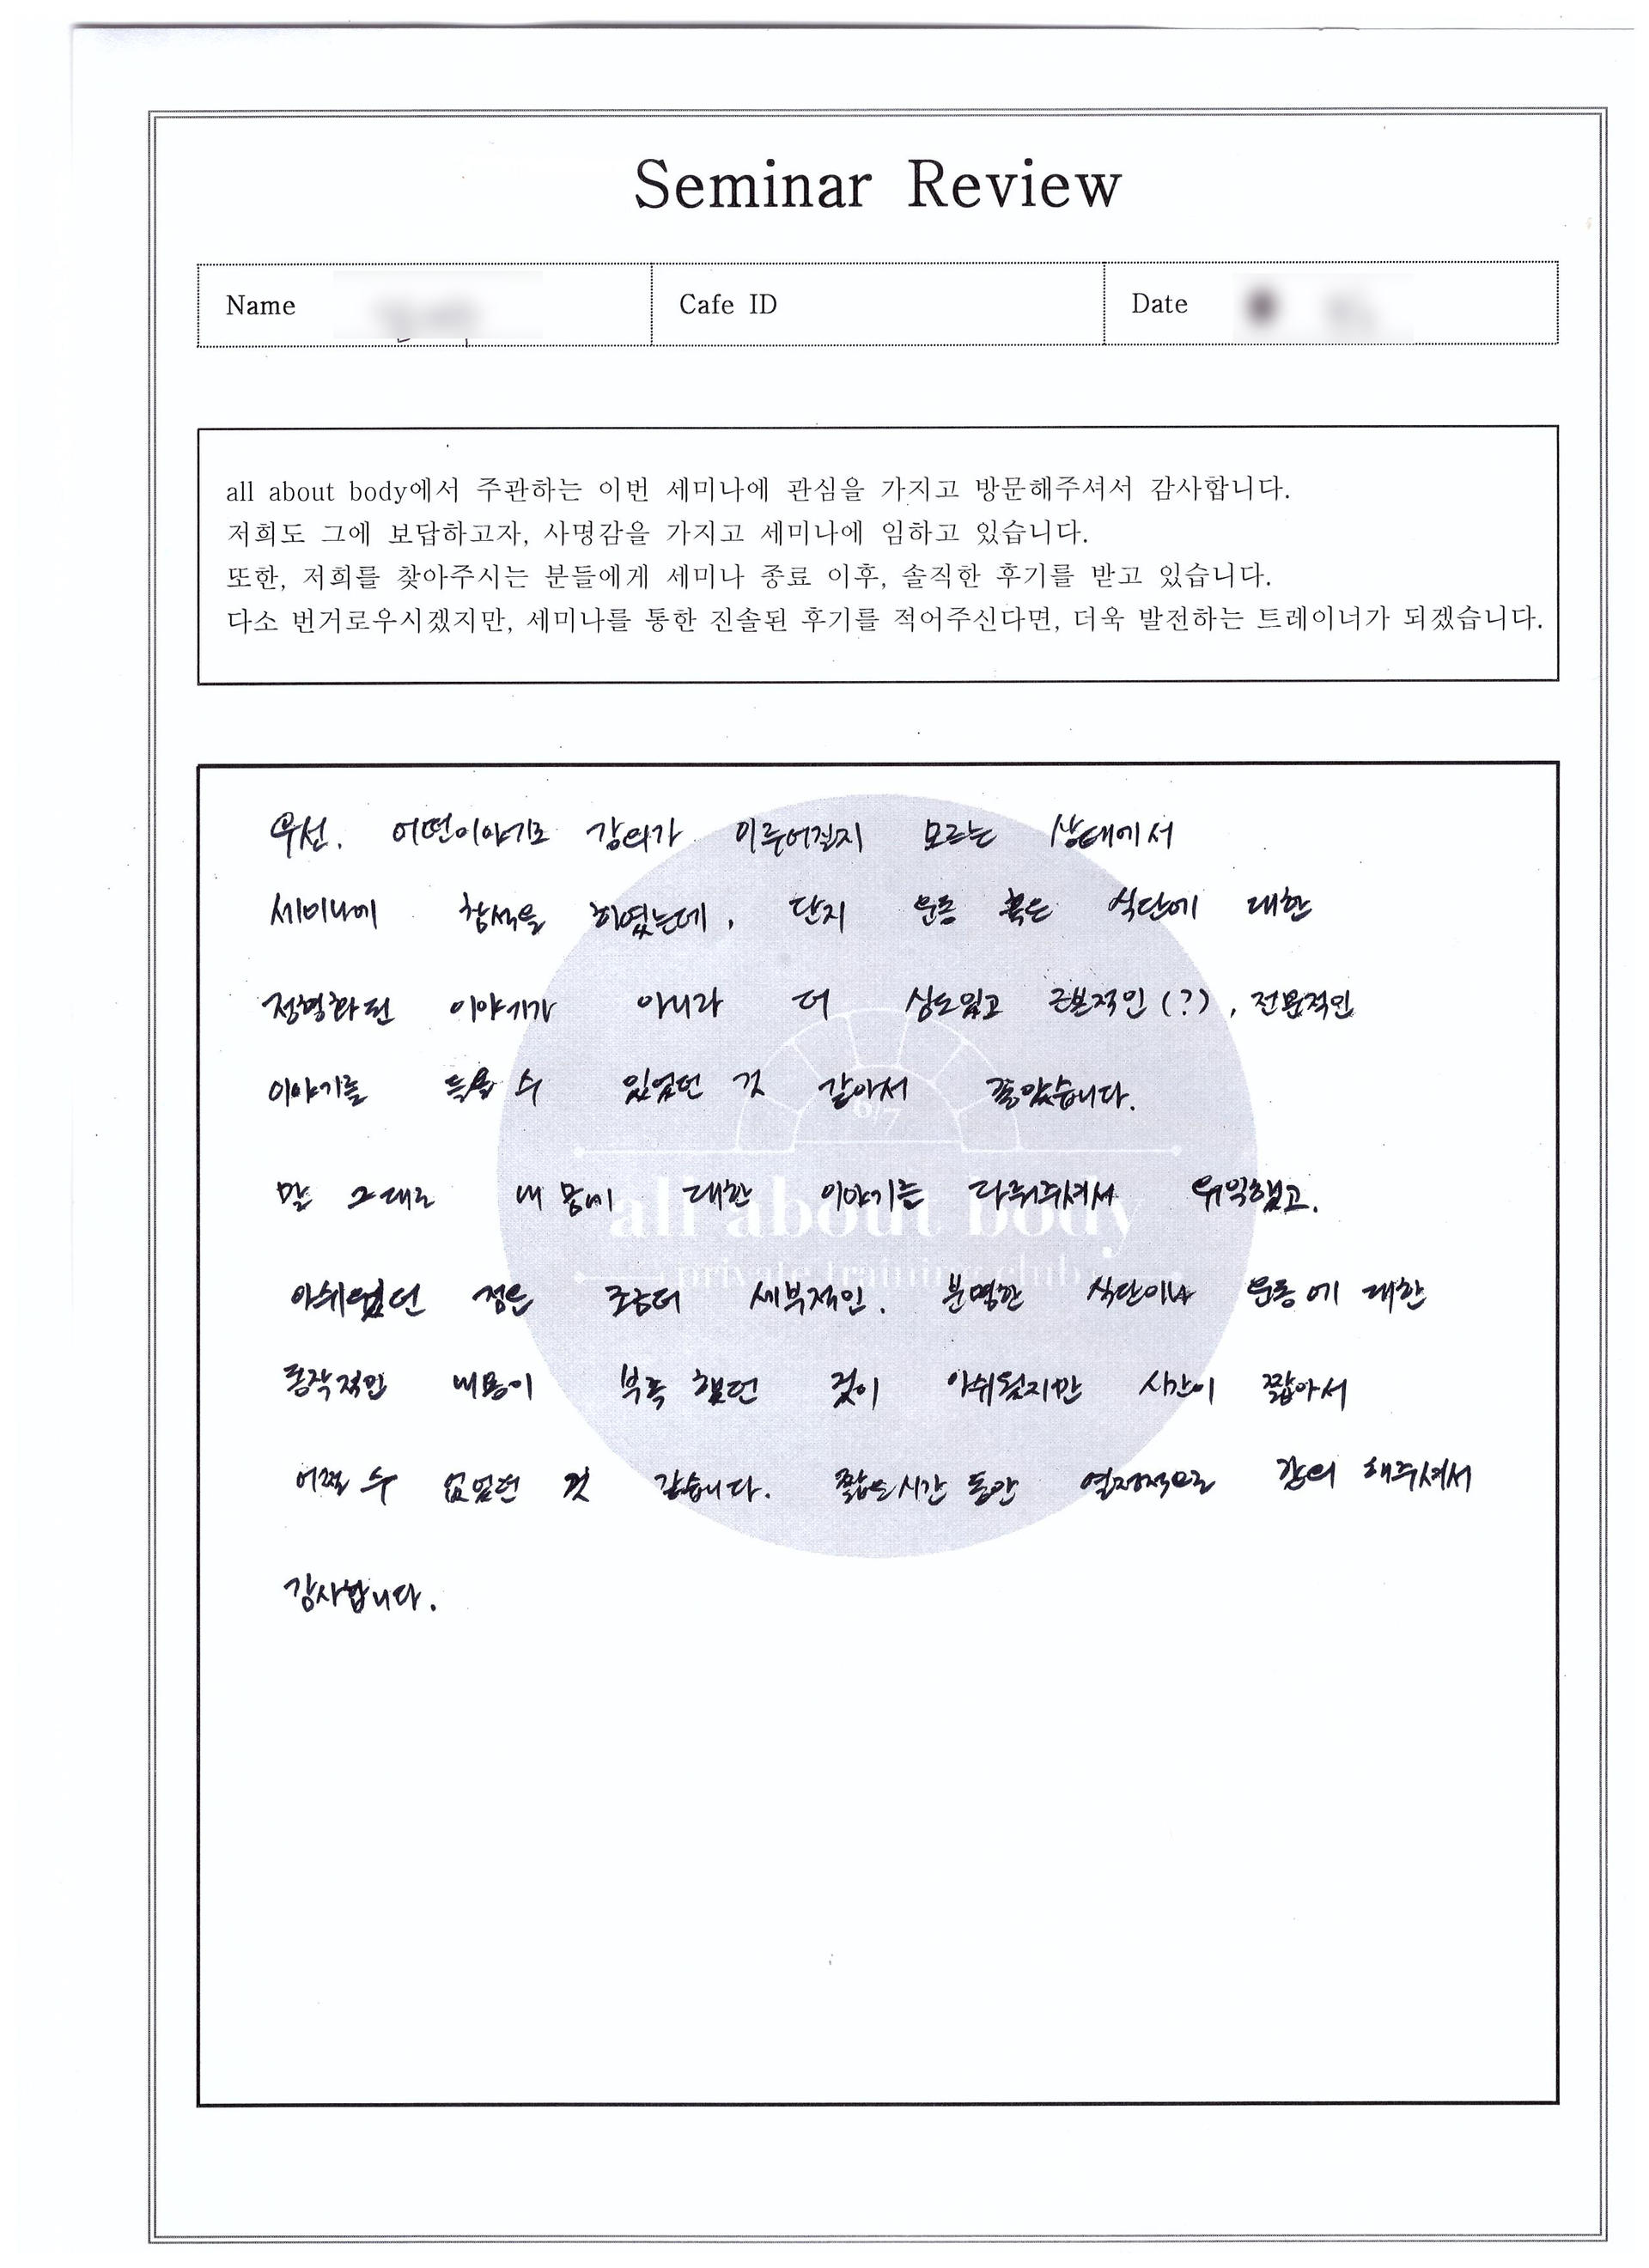 Seminar Review
Name
Cafe ID
Date
all about body에서 주관하는 이번 세미나에 관심을 가지고 방문해주셔서 감사합니다.
저희도 그에 보답하고자, 사명감을 가지고 세미나에 임하고 있습니다.
또한, 저희를 찾아주시는 분들에게 세미나 종료 이후, 솔직한 후기를 받고 있습니다.
다소 번거로우시겠지만, 세미나를 통한 진솔된 후기를 적어주신다면, 더욱 발전하는 트레이너가 되겠습니다.
우선. 어떤이야기로 강의가 이루어질지 모르는 상태에서
세미나에 참석을 하였는데, 단지 운동 혹은 식단에 대한
정형화된 이야기가 아니라 더 심도있고 근본적인(?), 전문적인
이야기를 들을 수 있었던 것 같아서 좋았습니다.
말 그대로 내 몸에 대한 이야기를 다뤄주셔서 유익했고.
아쉬웠던 점은 조금더 세부적인. 분명한 식단이나 운동에 대한
동작적인 내용이 부족했던 것이 아쉬웠지만 시간이 짧아서
어쩔 수 없었던 것 같습니다. 짧은시간 동안 열정적으로 강의 해주셔서
감사합니다.
6/7
all about body
private training club